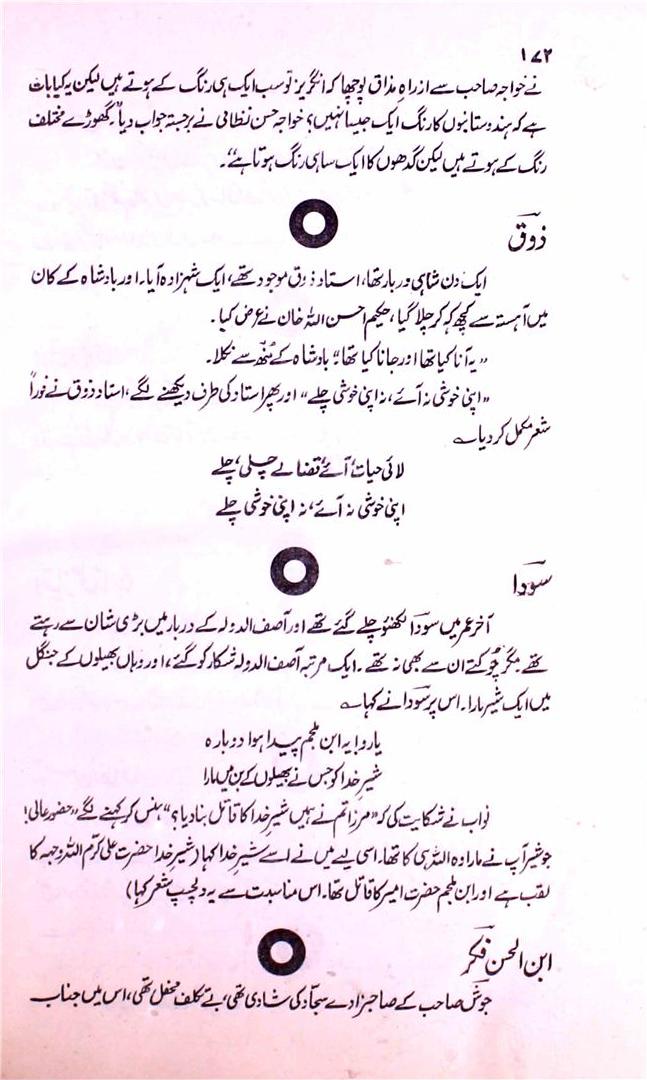 ۱۷۲
نے خواجہ صاحب سے از راہِ مذاق پوچھا کہ انگریز تو سب ایک ہی رنگ کے ہوتے ہیں لیکن یہ کیا بات
ہے کہ ہندوستانیوں کا رنگ ایک جیسا نہیں؟ خواجہ حسن نظامی نے برجستہ جواب دیا "گھوڑے مختلف
رنگ کے ہوتے ہیں لیکن گدھوں کا ایک سا ہی رنگ ہوتا ہے"۔
ذوق
ایک دن شاہی دربار تھا، استاد ذوق موجود تھے، ایک شہزادہ آیا۔ اور بادشاہ کے کان
میں آہستہ سے کچھ کہہ کر چلا گیا، حکیم احسن اللہ خان نے عرض کیا۔
"یہ آنا کیا تھا اور جانا کیا تھا" بادشاہ کے منھ سے نکلا۔
"اپنی خوشی نہ آئے، نہ اپنی خوشی چلے" اور پھر استاد کی طرف دیکھنے لگے، استاد ذوق نے فوراً
شعر مکمل کر دیا ؎
لائی حیات، آئے، قضا لے چلی، چلے
اپنی خوشی نہ آئے، نہ اپنی خوشی چلے
سودا
آخر عمر میں سودا لکھنؤ چلے گئے تھے اور آصف الدولہ کے دربار میں بڑی شان سے رہتے
تھے مگر چُوکتے ان سے بھی نہ تھے۔ ایک مرتبہ آصف الدولہ شکار کو گئے، اور وہاں بھیلوں کے جنگل
میں ایک شیر مارا۔ اس پر سودا نے کہا ؎
یارو! یہ ابن ملجم پیدا ہوا دوبارہ
شیرِ خدا کو جس نے بھیلوں کے بن میں مارا
نواب نے شکایت کی کہ "مرزا تم نے ہمیں شیرِ خدا کا قاتل بنا دیا؟" ہنس کر کہنے لگے "حضور عالی!
جو شیر آپ نے مارا وہ اللہ ہی کا تھا۔ اسی لیے میں نے اسے شیرِ خدا کہا (شیرِ خدا حضرت علی کرّم اللہ وجہہ کا
لقب ہے اور ابن ملجم حضرت امیر کا قاتل تھا۔ اس مناسبت سے یہ دلچسپ شعر کہا)
ابن الحسن فکر
جوش صاحب کے صاحبزادے سجاد کی شادی تھی، بے تکلف محفل تھی، اس میں جناب